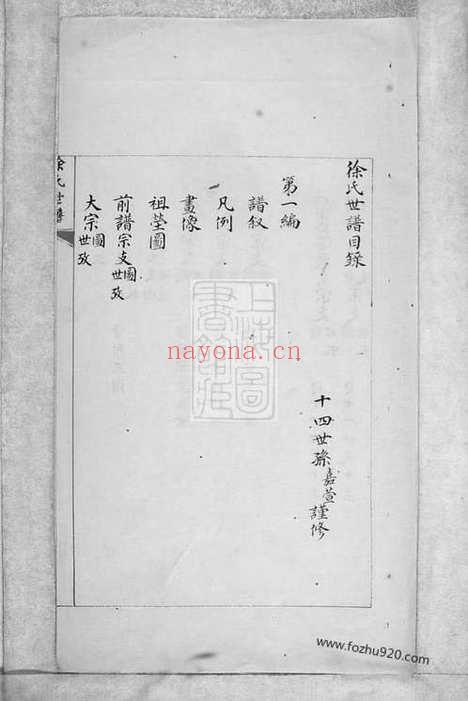 徐氏世譜目錄
十四世孫嘉萱謹修
第一編
譜敘
凡例
畫像
祖塋圖
前譜宗支圖世攷
大宗圖世攷
徐氏世譜
上海圖書館藏
nayona.cn
www.fozhu920.com